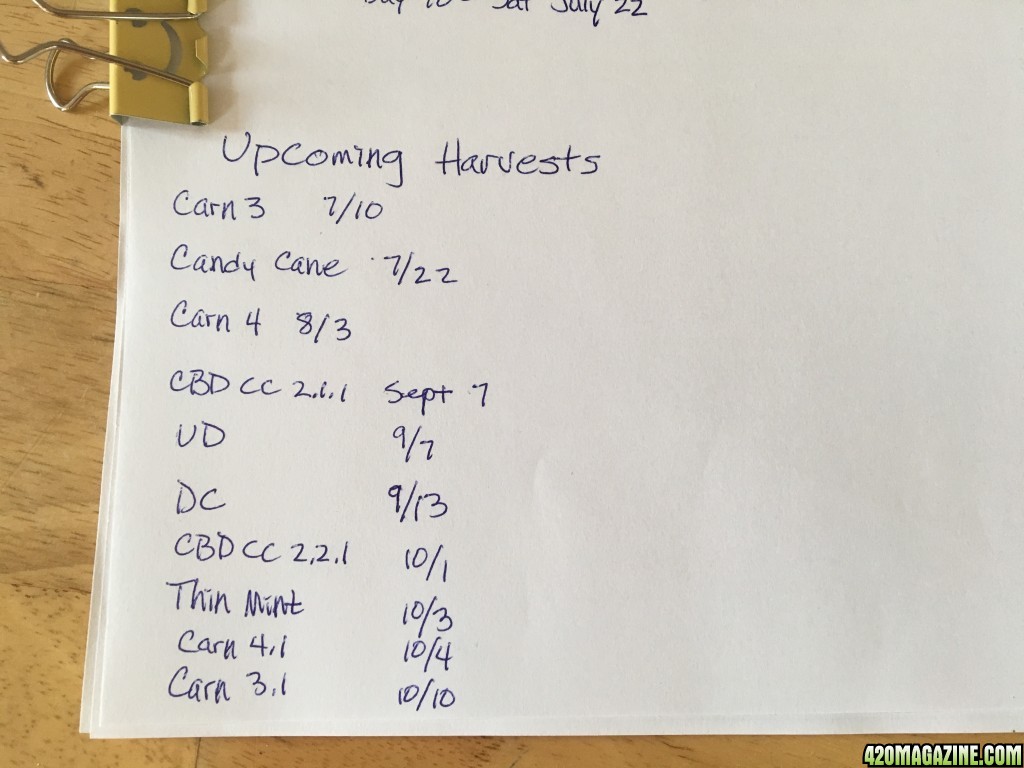 Day 70 - Sat July 22
Upcoming Harvests
Carn 3 7/10
Candy Cane 7/22
Carn 4 8/3
CBD CC 2.1.1 Sept 7
UD 9/7
DC 9/13
CBD CC 2.2.1 10/1
Thin Mint 10/3
Carn 4.1 10/4
Carn 3.1 10/10
420MAGAZINE.COM